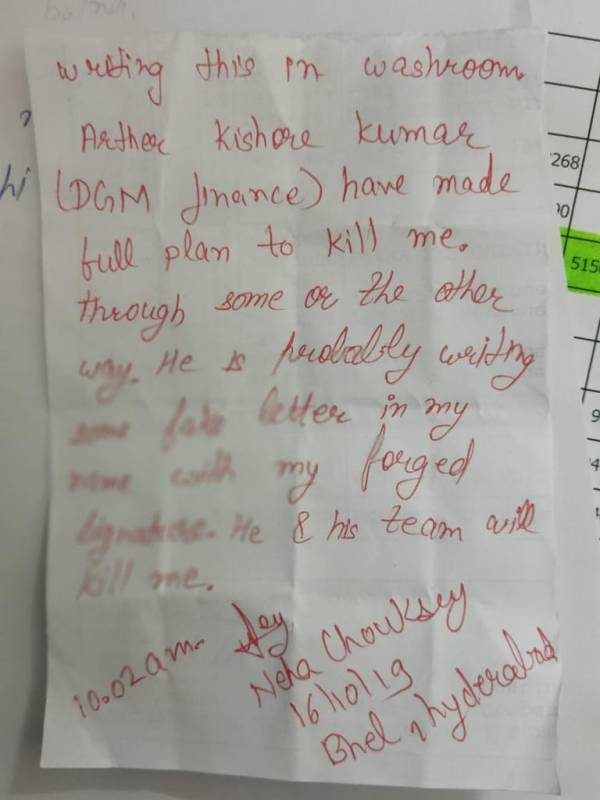 writing this in washroom.
Arther Kishore Kumar
(DGM finance) have made
full plan to kill me.
through some or the other
way. He is probably writing
some fake letter in my
name with my forged
signature. He & his team will
kill me.
10.02 am.
Neha Chowksey
16/10/19
Bhel, hyderabad
268
90
515
9
4
hi